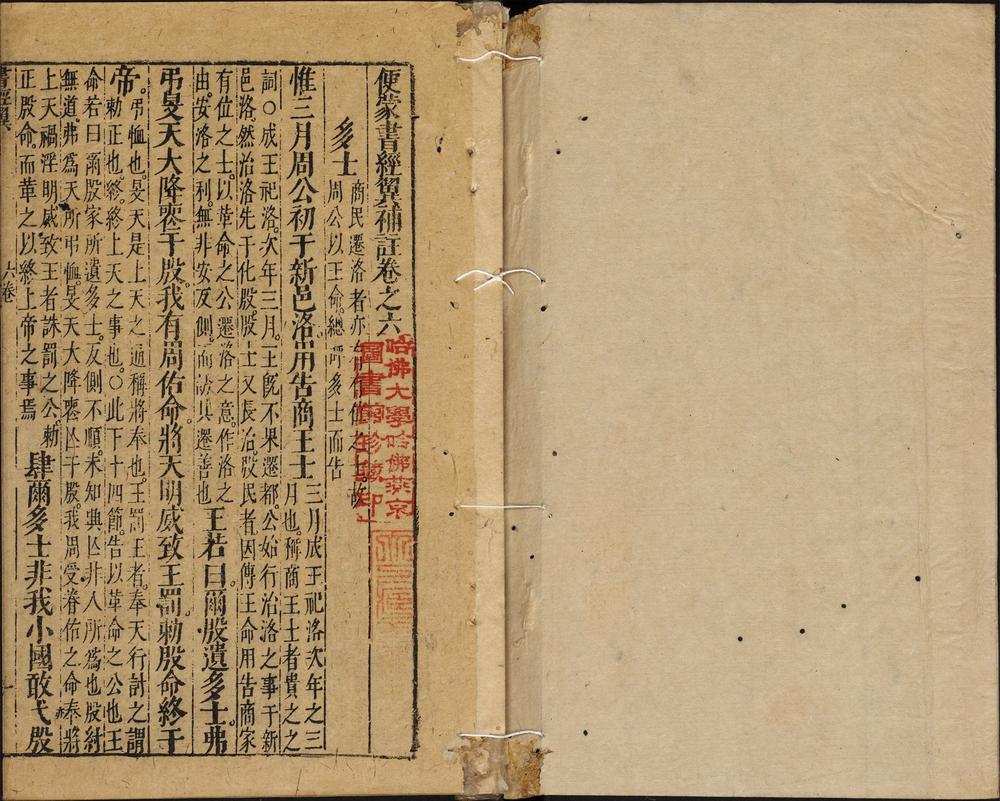 便蒙書經翼補註卷之六
多士
商民遷洛者亦有有位之士故
周公以王命總呼多士而告
惟三月周公初于新邑洛用告商王士三月成王祀洛次年之三
月也稱商王士者貴之之
詞○成王祀洛次年三月王既不果遷都公始行治洛之事于新
邑洛然治洛先于化殷殷士又長治殷民者因傳王命用告商家
有位之士以革命之公遷洛之意作洛之
由安洛之利無非安反側而誘其遷善也王若曰爾殷遺多士弗
弔旻天大降喪于殷我有周佑命將天明威致王罰勅殷命終于
帝弔恤也旻天是上天之通稱將奉也王罰王者奉天行討之謂
勅正也終終上天之事也○此下十四節告以革命之公也王
命若曰爾殷家所遺多士反側不順未知興亾非人所爲也殷紂
無道弗爲天所弔恤旻天大降喪亾于殷我周受眷佑之命奉將
上天禍淫明威致王者誅罰之公勅
正殷命而革之以終上帝之事焉肆爾多士非我小國敢弋殷
書經翼
六卷
一
哈佛大學哈佛燕京
圖書館珍藏印